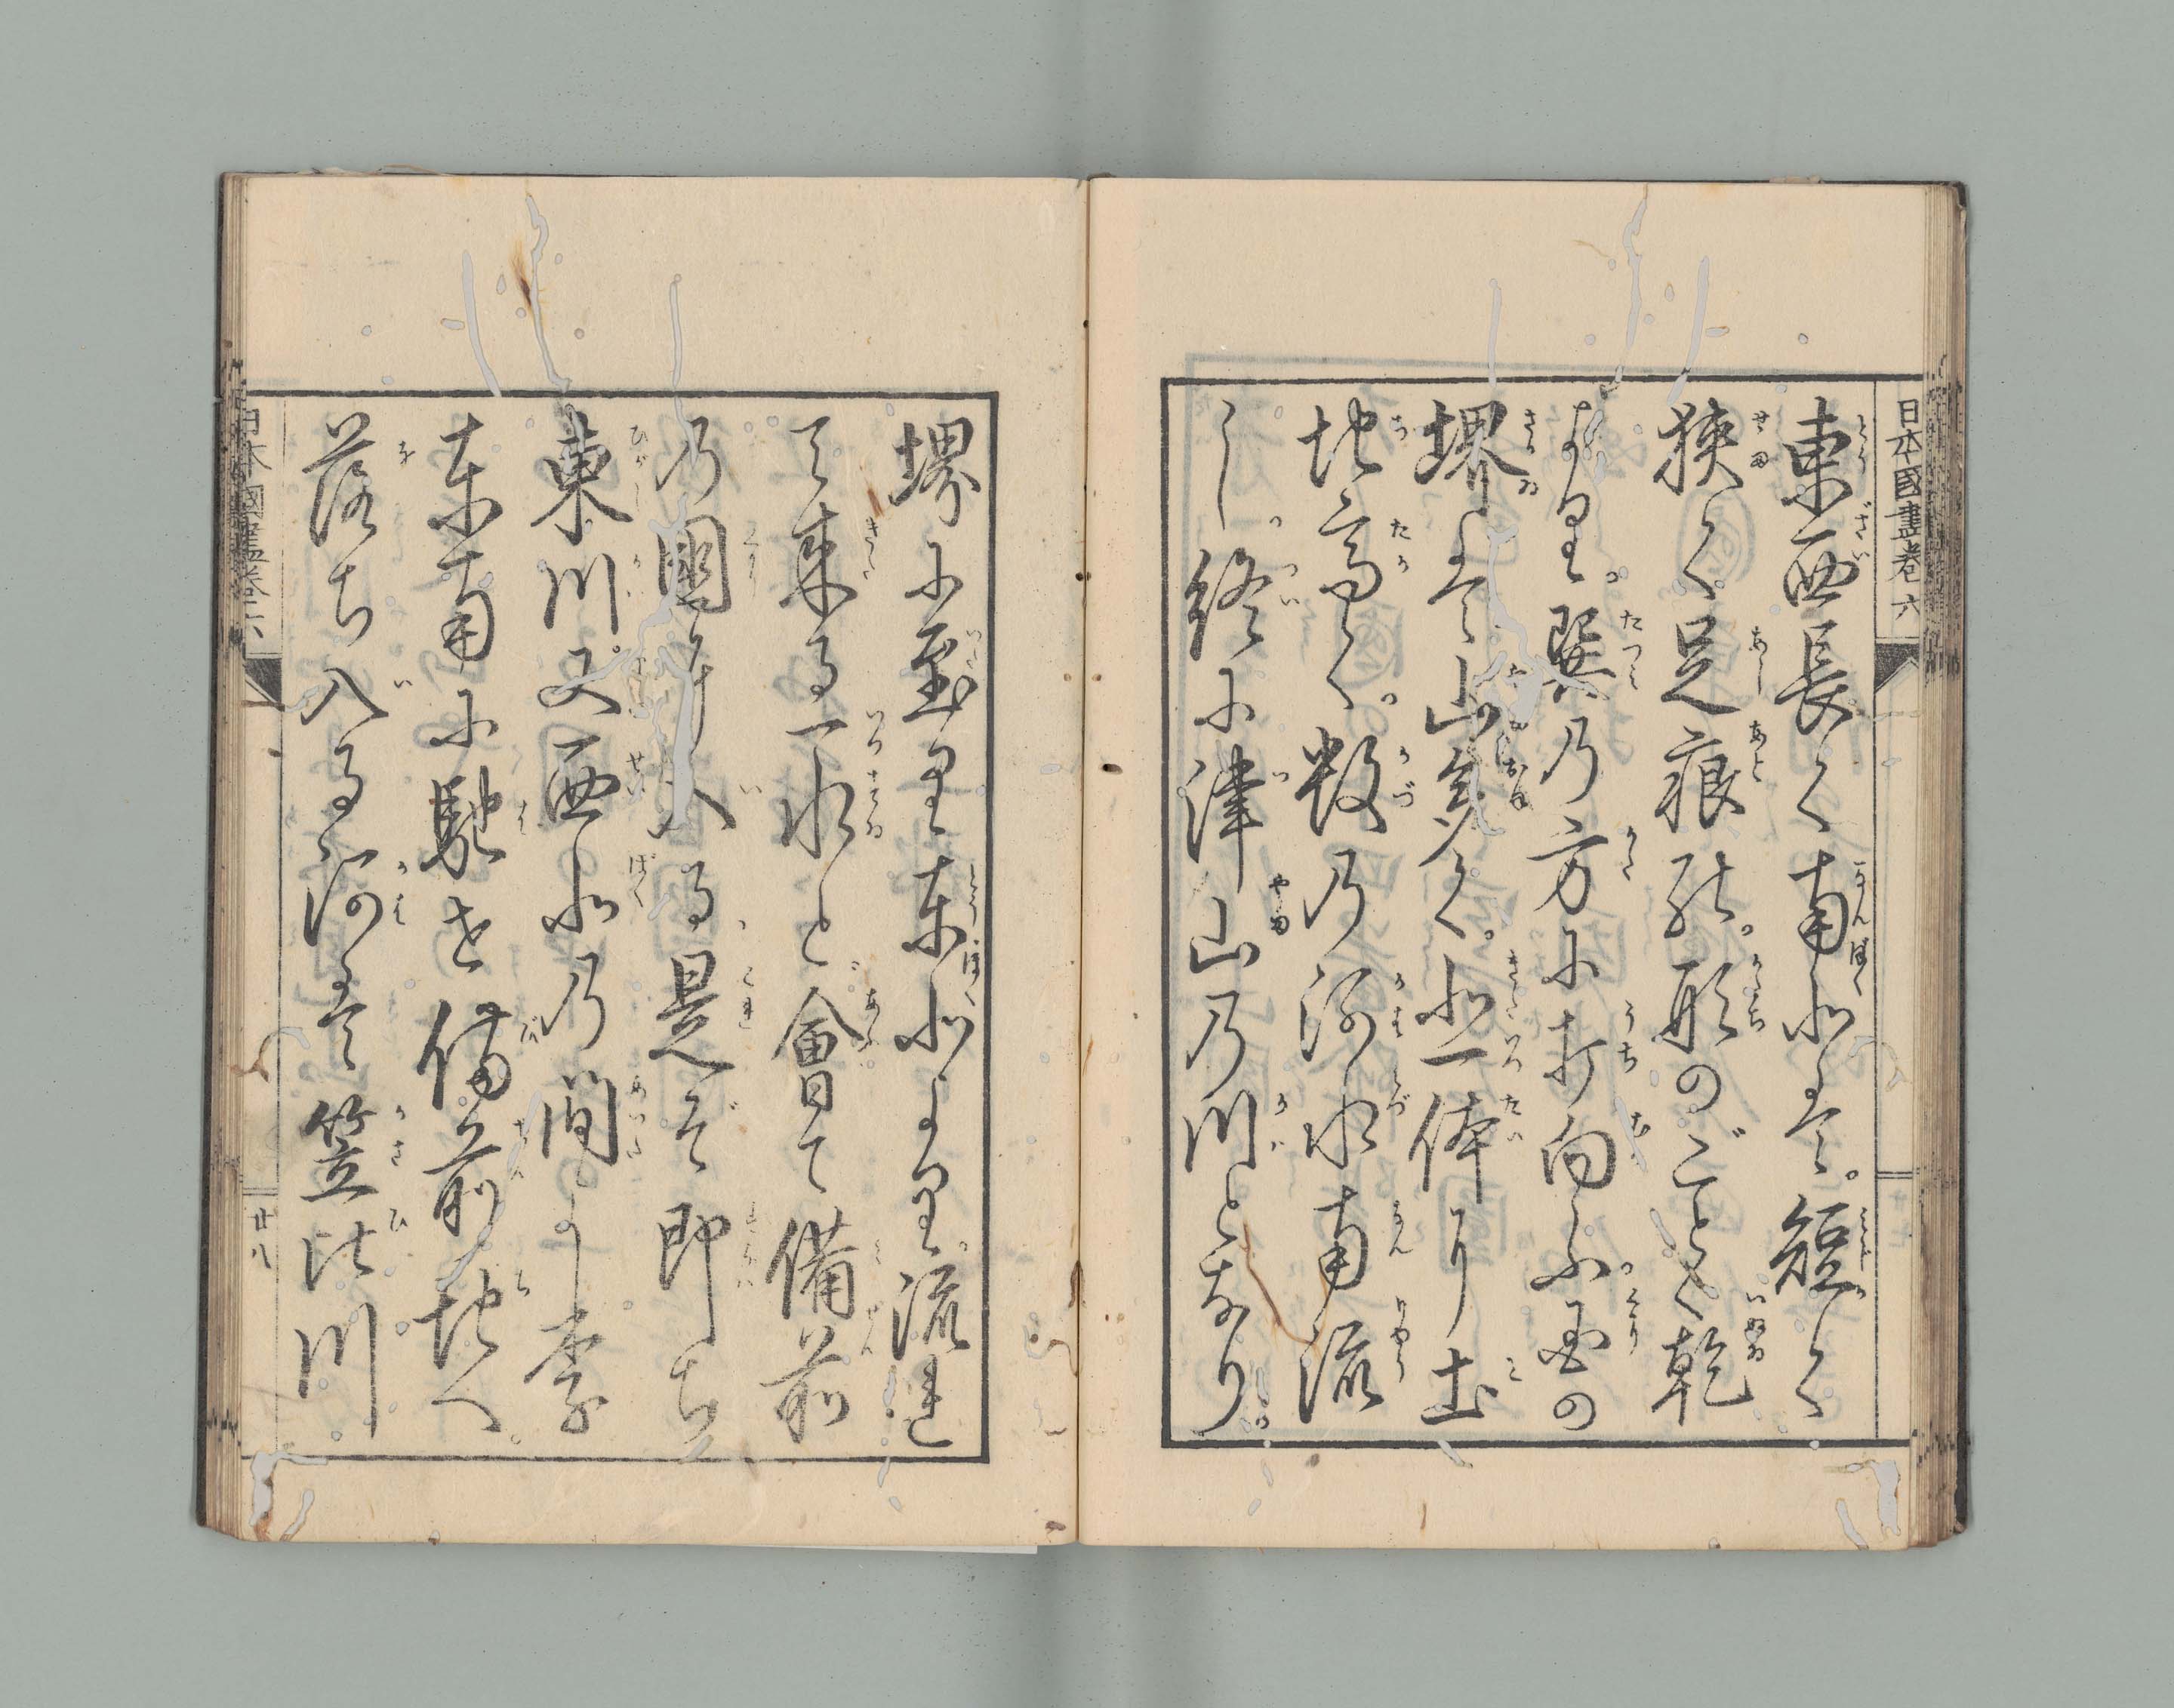 日本國盡卷六
東西長く南北は短く
狭く足痕の形のごとく乾
より巽の方に打向ふ国の
堺は山多く北一体に土
地高く数の河水南流
し終に津山の川となり
堺に至り東北より流れ
て来る一水と會て備前
の國に入る是ぞ即ち
東川又西北の間より
東南に馳せ備前地へ
落ち入る河は笠比川
日本國盡卷六
廿八